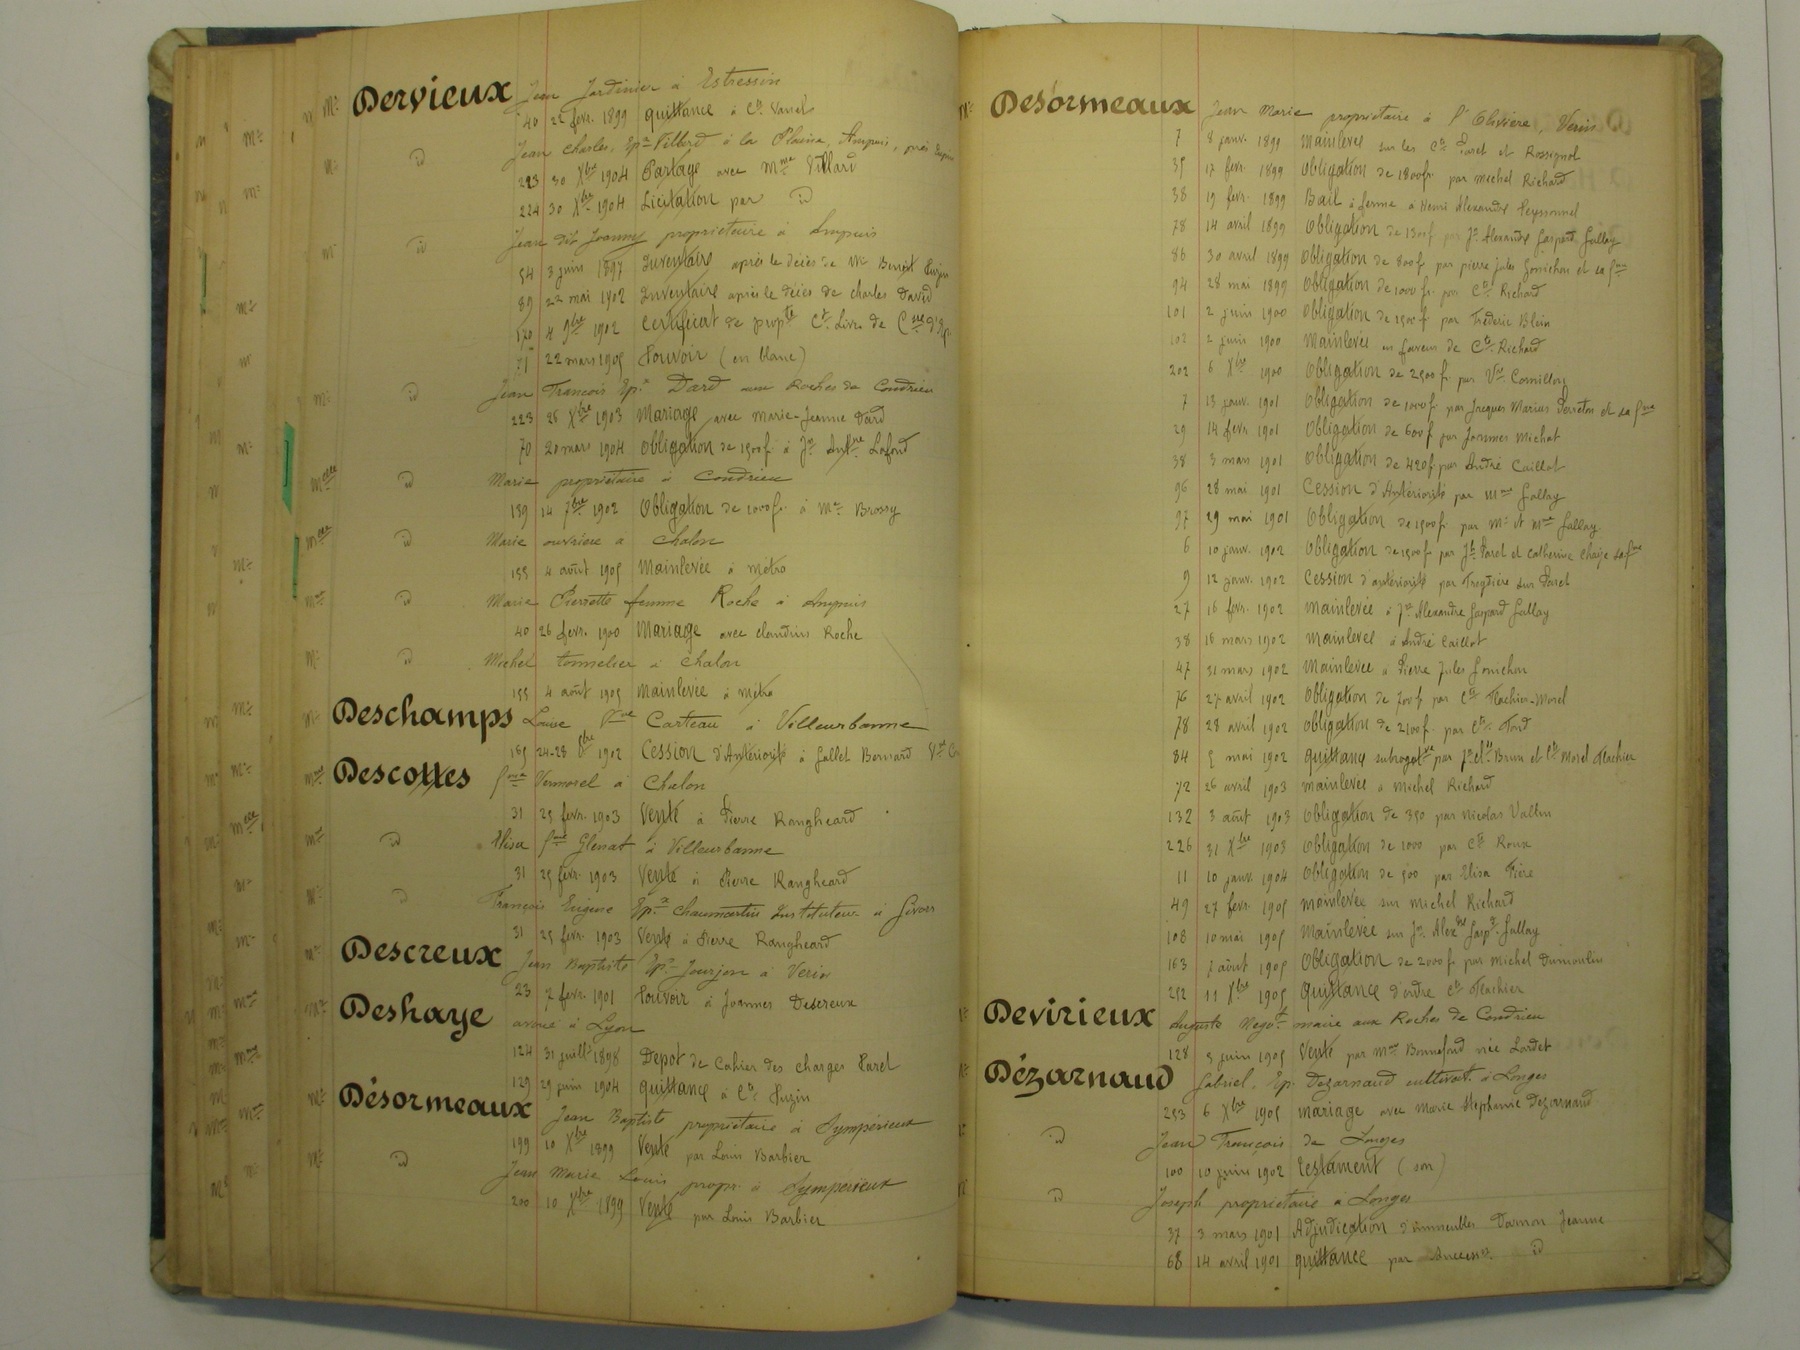 Mr Dervieux Jean Jardinier à Estressin
40 22 févr. 1899 quittance à Cts Vanel
id Jean Charles, Epx Villard à la Plaine, Ampuis, près
223 30 Xbre 1904 Partage avec Mme Villard
224 30 Xbre 1904 Licitation par id
id Jean dit Joanny propriétaire à Ampuis
54 3 juin 1897 Inventaire après le décès de Mr Benoit
89 22 mai 1902 Inventaire après le décès de Charles David
170 4 9bre 1902 Certificat de propté Ct Livre de Csse d'Ep.
71 22 mars 1905 Pouvoir (en blanc)
id Jean François Epx Dard aux Roches de Condrieu
223 26 Xbre 1903 Mariage avec Marie-Jeanne Dard
70 20 mars 1904 Obligation de 1500f. à Jn Antne Lafond
Melle id Marie propriétaire à Condrieu
139 14 7bre 1902 Obligation de 1000fr. à Mr Brossy
Melle id Marie ouvrière à Chalon
155 4 août 1905 Mainlevée à Métro
Mme id Marie Pierrette femme Roche à Ampuis
40 26 févr. 1900 Mariage avec Claudius Roche
Mr id Michel tonnelier à Chalon
155 4 août 1905 Mainlevée à Métro
Deschamps Louise Vve Carteau à Villeurbanne
165 24-28 8bre 1902 Cession d'Antériorité à Gallet Bernard
Mme Descottes fme Vermorel à Chalon
31 25 févr. 1903 Vente à Pierre Rangheard
Mme id Elisa fme Glénat à Villeurbanne
31 25 févr. 1903 Vente à Pierre Rangheard
Mr id François Eugène Epx Chaumartin Instituteur à Givors
31 25 févr. 1903 Vente à Pierre Rangheard
Mr Descreux Jean Baptiste Epx Jourjon à Verin
23 7 févr. 1901 Pouvoir à Joannes Descreux
Deshaye avoué à Lyon
124 31 juillt 1898 Dépot de Cahier des charges Parel
129 29 juin 1904 quittance à Cts Puzin
Mr Désormeaux Jean Baptiste propriétaire à Sympérieux
199 10 Xbre 1899 Vente par Louis Barbier
Mr id Jean Marie Louis propr. à Sympérieux
200 10 Xbre 1899 Vente par Louis Barbier
Mr Désormeaux Jean Marie propriétaire à l'Olivière, Verin
7 8 janv. 1899 Mainlevée sur les Cts Parel et Rossignol
35 17 févr. 1899 Obligation de 1800fr. par Michel Richard
38 19 févr. 1899 Bail à ferme à Henri Alexandre Peyssonnel
78 14 avril 1899 Obligation de 1500f par Jn Alexandre Gaspard Gallay
86 30 avril 1899 Obligation de 800f. par Pierre Jules Gonichon et sa fme
94 28 mai 1899 Obligation de 1000 fr. par Cts Richard
101 2 juin 1900 Obligation de 1500f par Frédéric Blein
102 2 juin 1900 Mainlevée en faveur de Cts Richard
202 6 Xbre 1900 Obligation de 2500f. par Vve Cornillon
7 13 janv. 1901 Obligation de 1000f par Jacques Marius Perreton et sa fme
29 14 févr. 1901 Obligation de 600f par Joannes Michat
38 3 mars 1901 Obligation de 420f. par André Caillot
96 28 mai 1901 Cession d'Antériorité par Mme Gallay
97 29 mai 1901 Obligation de 1500fr. par Mr et Mme Gallay
6 10 janv. 1902 Obligation de 1500f par Jh Parel et Catherine Chaize sa fme
9 12 janv. 1902 Cession d'antériorité par sur Parel
27 16 févr. 1902 Mainlevée à Jn Alexandre Gaspard Gallay
38 16 mars 1902 Mainlevée à André Caillot
47 31 mars 1902 Mainlevée à Pierre Jules Gonichon
76 27 avril 1902 Obligation de 700f par Cts Flachier-Morel
78 28 avril 1902 Obligation de 2100f. par Cts Fard
84 5 mai 1902 quittance subrogatve par Jn Cl. Brun et Cts Morel Flachier
72 26 avril 1903 mainlevée à Michel Richard
132 3 août 1903 Obligation de 350 par Nicolas Vallin
226 31 Xbre 1903 Obligation de 1000 par Cts Roux
11 10 janv. 1904 Obligation de 500 par Elisa Fière
49 27 févr. 1905 mainlevée sur Michel Richard
108 10 mai 1905 Mainlevée sur Jn Alexre Gaspd Gallay
163 août 1905 Obligation de 2000f par Michel Dumoulin
252 11 Xbre 1905 Quittance d'ordre Cts Flachier
Devirieux Auguste Négt maire aux Roches de Condrieu
128 5 juin 1905 Vente par Mme Bonnefond née Lardet
Dézarnaud Gabriel, Ep. Dezarnaud cultivat. à Longes
253 6 Xbre 1905 mariage avec Marie Stéphanie Dezarnaud
id Jean François de Longes
100 10 juin 1902 testament (son)
id Joseph propriétaire à Longes
37 3 mars 1901 Adjudication d'immeubles Damon Jeanne
68 14 avril 1901 quittance par Success. id